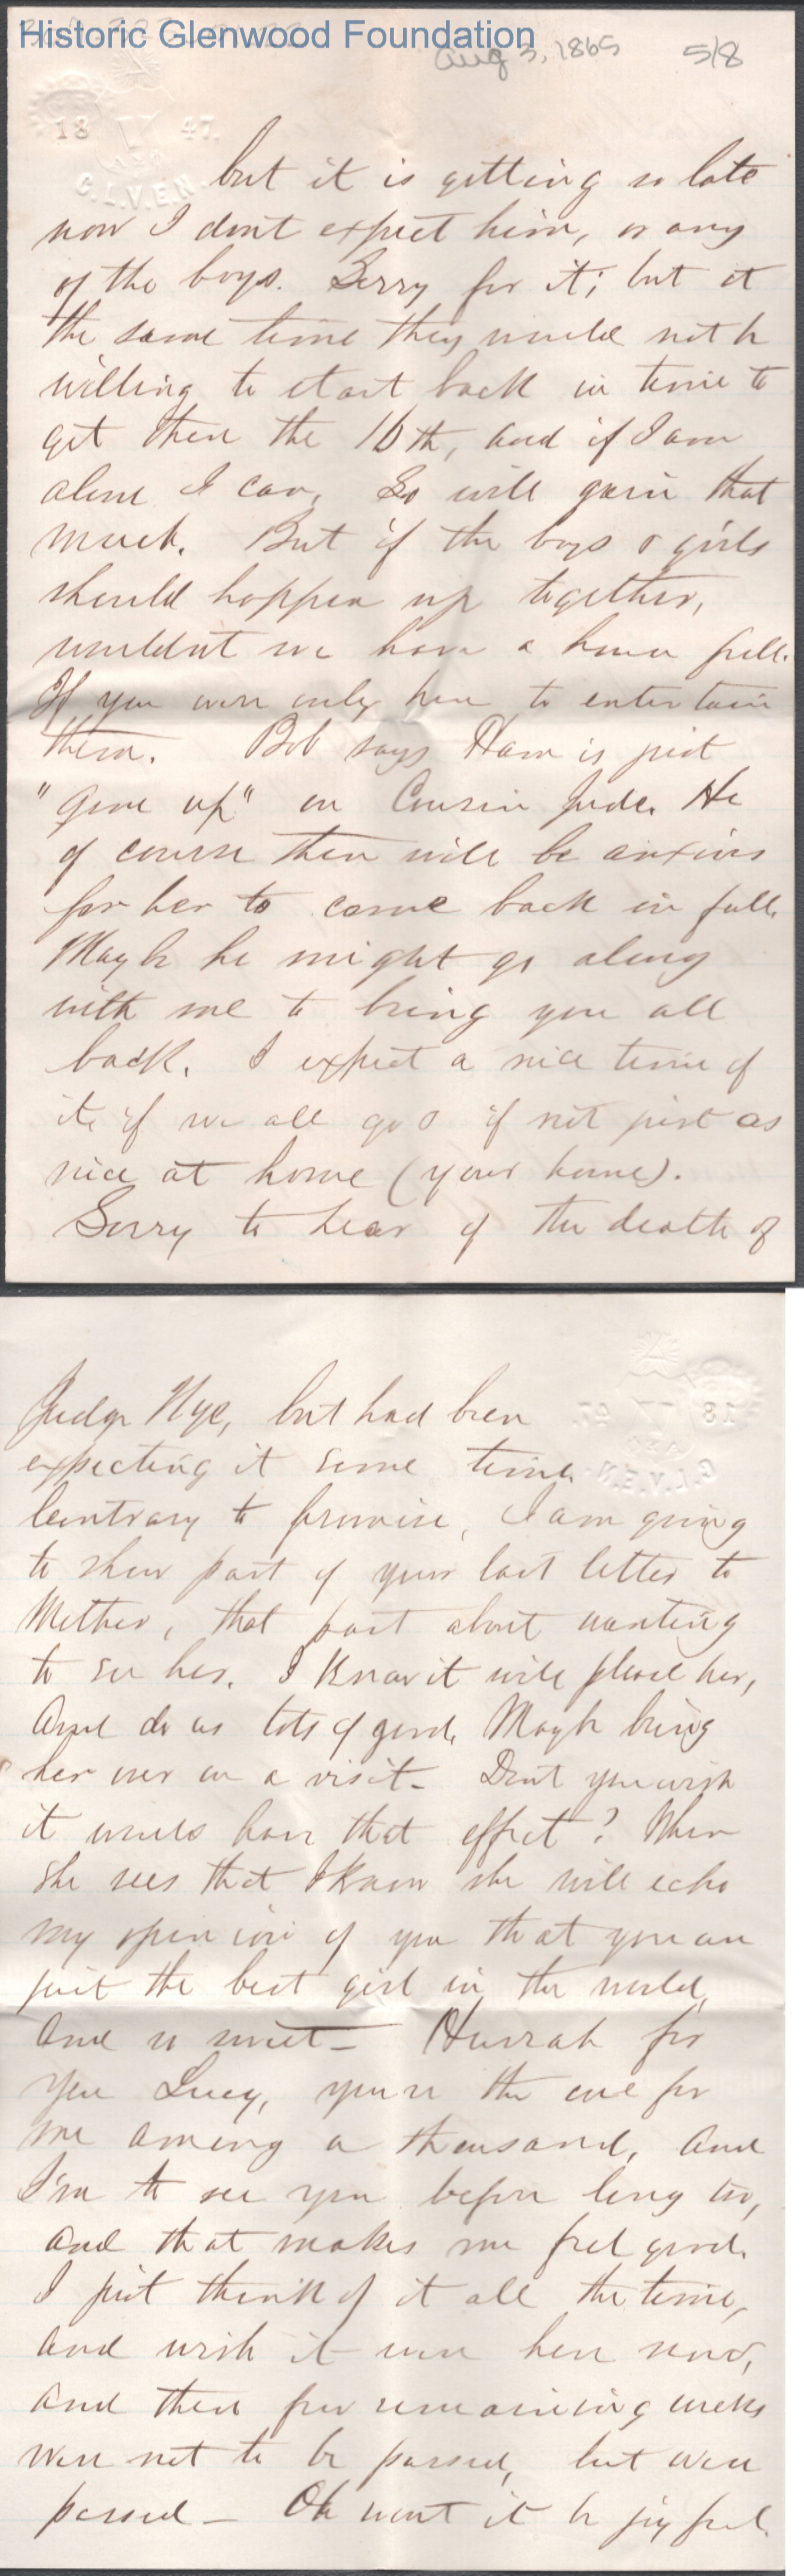 Historic Glenwood Foundation
Aug 3, 1865 5/8
18 47.
G.L.VEN.
but it is getting so late
now I dont expect him, or any
of the boys. Sorry for it; but at
the same time they would not be
willing to start back in time to
get there the 16th, and if I am
alone I can. So will gain that
much. But if the boys & girls
should happen up together,
wouldnt we have a house full.
If you were only here to entertain
them. Bob says Ham is just
"gone up" on Cousin Jude. He
of course then will be anxious
for her to come back in fall.
Maybe he might go along
with me to bring you all
back. I expect a nice time of
it, if we all go & if not just as
nice at home (your home).
Sorry to hear of the death of
Judge Nye, but had been
expecting it some time.
Contrary to promise, I am going
to show part of your last letter to
Mother, that part about wanting
to see her. I know it will please her,
And do us lots of good. Maybe bring
her over on a visit - Dont you wish
it would have that effect? When
she sees that I know she will echo
my opinion of you that you are
just the best girl in the world,
And so sweet - Hurrah for
you Lucy, you're the one for
me among a thousand, And
I'm to see you before long too,
And that makes me feel good.
I just think of it all the time,
And wish it were here now,
And these few remaining weeks
were not to be passed, but were
passed - Oh wont it be joyful.